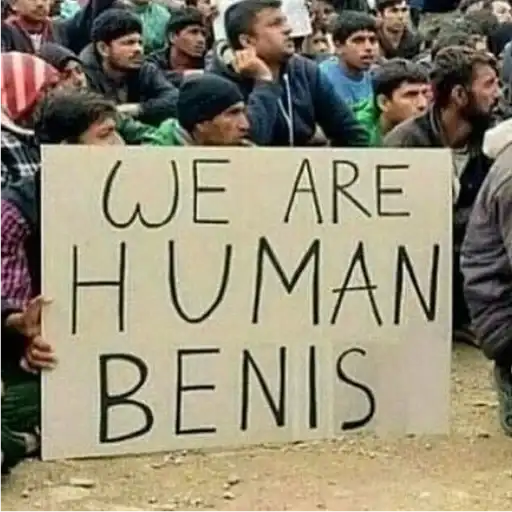 WE ARE
HUMAN
BENIS